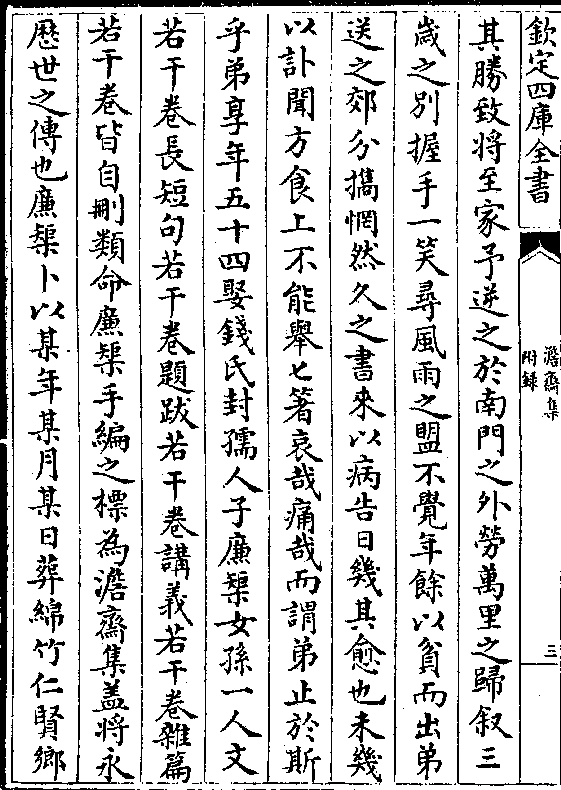 欽定四庫全書
澹齋集
附録
三
其勝致將至家予逆之於南門之外勞萬里之歸叙三
歳之别握手一笑尋風雨之盟不覺年餘以貧而出弟
送之郊分攜惘然久之書來以病告日幾其愈也未幾
以訃聞方食上不能舉匕箸哀哉痛哉而謂弟止於斯
乎弟享年五十四娶錢氏封孺人子廉榘女孫一人文
若干卷長短句若干卷題跋若干卷講義若干卷雜篇
若干卷皆自刪類命廉榘手編之標為澹齋集盖將永
厯世之傳也廉榘卜以某年某月某日葬綿竹仁賢鄉